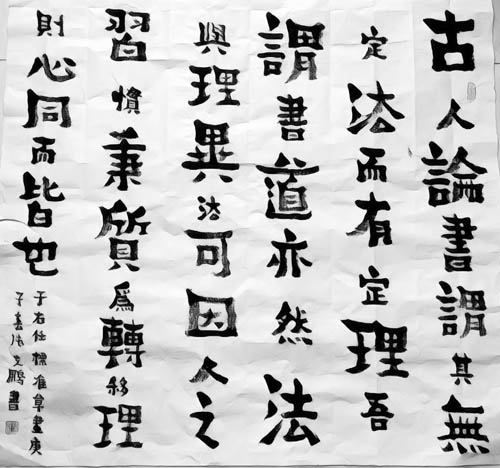 古人論書謂其無
定法而有定理吾
謂書道亦然法
與理異法可因人之
習慣秉質爲轉移理
則心同而皆也
于右任標准草書庚
子春鵬書